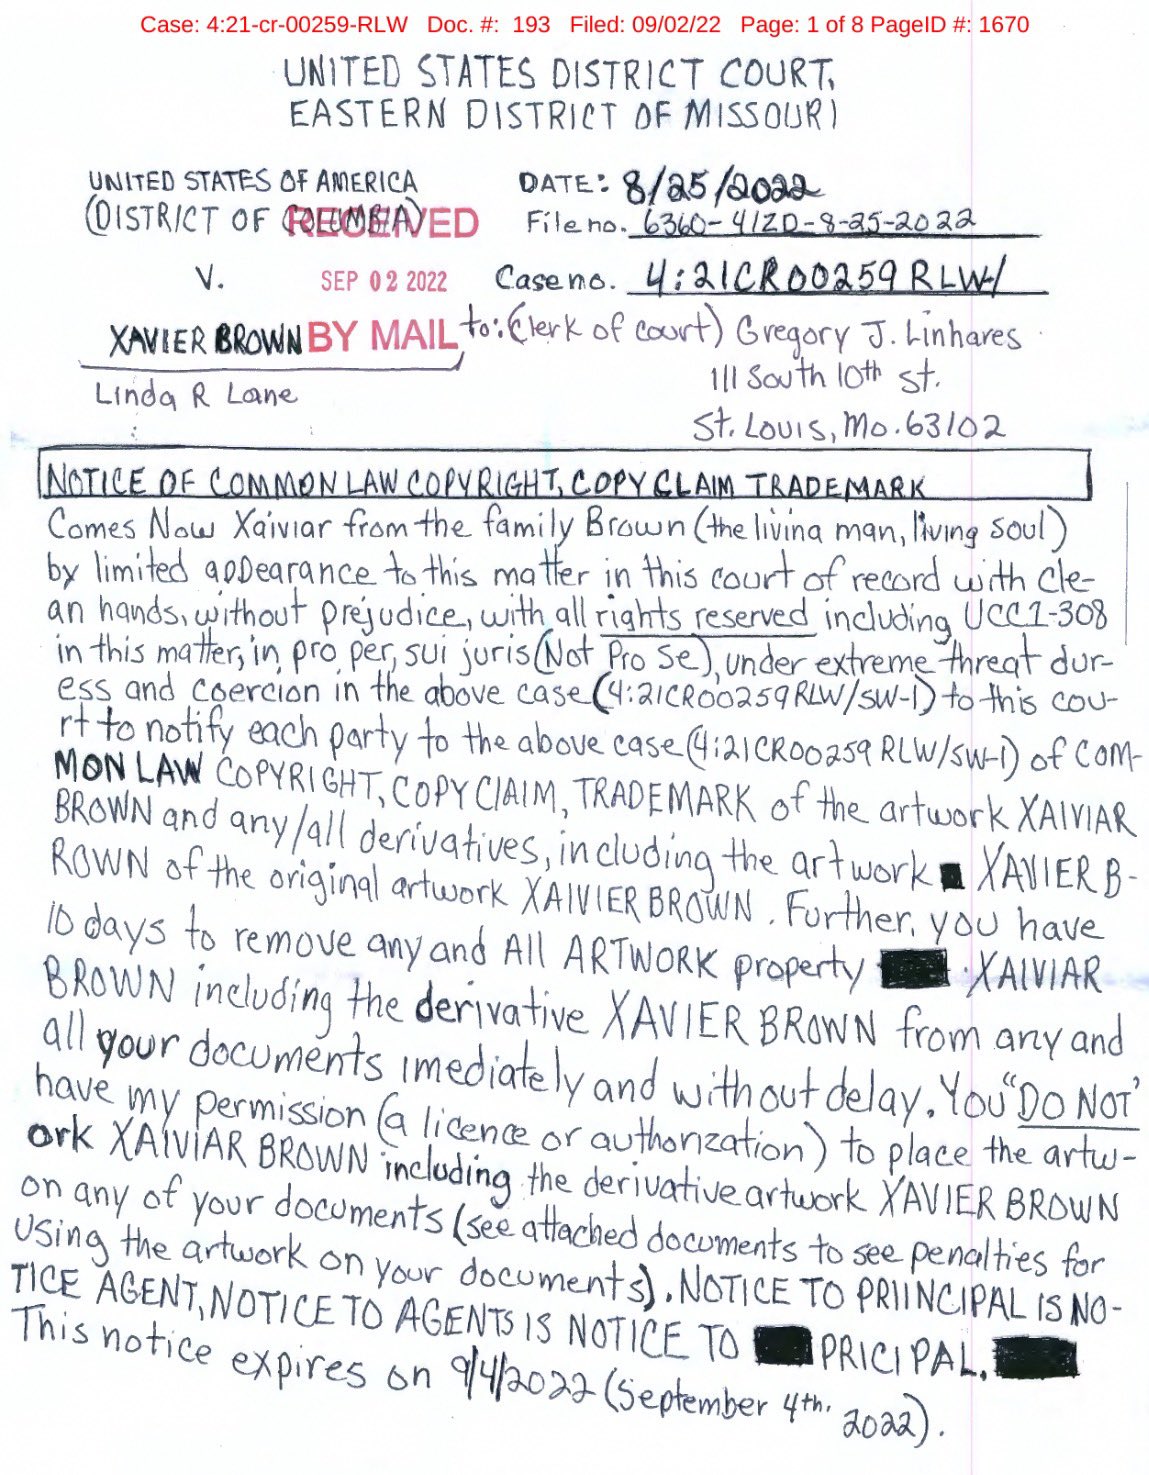 Case: 4:21-cr-00259-RLW Doc. #: 193 Filed: 09/02/22 Page: 1 of 8 PageID #: 1670
UNITED STATES DISTRICT COURT,
EASTERN DISTRICT OF MISSOURI
UNITED STATES OF AMERICA
DATE: 8/25/2022
(DISTRICT OF COLUMBIA)
RECEIVED
File no. 6360-41ZD-8-25-2022
V.
SEP 02 2022
Case no. 4:21CR00259 RLW-/
XAVIER BROWN
BY MAIL
to: (Clerk of court) Gregory J. Linhares
111 South 10th st.
Linda R Lane
St. Louis, Mo. 63102
NOTICE OF COMMON LAW COPYRIGHT, COPY CLAIM TRADEMARK
Comes Now Xaiviar from the family Brown (the living man, living soul)
by limited appearance to this matter in this court of record with cle-
an hands, without prejudice, with all rights reserved including UCC1-308
in this matter, in pro per, sui juris (Not Pro Se), under extreme threat dur-
ess and coercion in the above case (4:21CR00259RLW/SW-1) to this cou-
rt to notify each party to the above case (4:21CR00259 RLW/SW-1) of COM-
MON LAW COPYRIGHT, COPY CLAIM, TRADEMARK of the artwork XAIVIAR
BROWN and any/all derivatives, including the artwork XAVIER B-
ROWN of the original artwork XAIVIER BROWN. Further, you have
10 days to remove any and All ARTWORK property XAIVIAR
BROWN including the derivative XAVIER BROWN from any and
all your documents imediately and without delay. You "DO NOT'
have my permission (a licence or authorization) to place the artw-
ork XAIVIAR BROWN including the derivative artwork XAVIER BROWN
on any of your documents (see attached documents to see penalties for
Using the artwork on your documents). NOTICE TO PRIINCIPAL IS NO-
TICE AGENT, NOTICE TO AGENTS IS NOTICE TO PRICIPAL.
This notice expires on 9/4/2022 (September 4th. 2022).